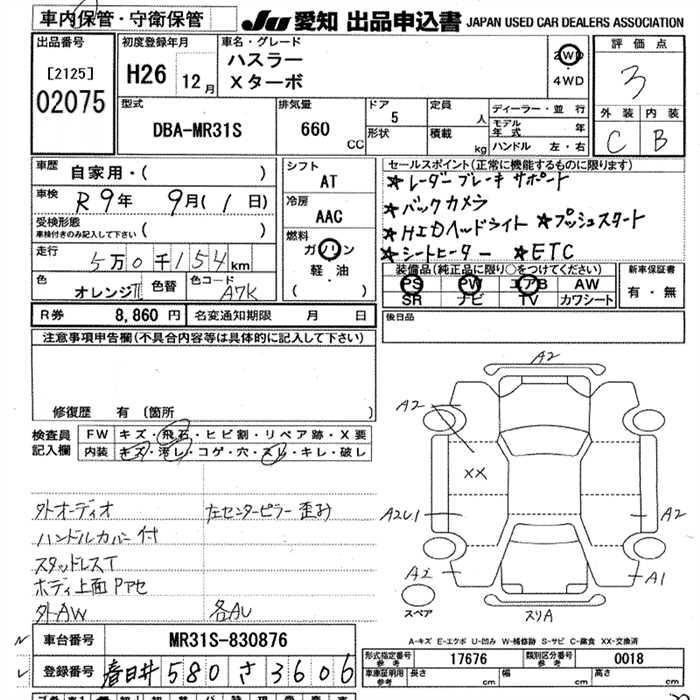 車内保管・守衛保管
JU 愛知 出品申込書 JAPAN USED CAR DEALERS ASSOCIATION
出品番号
[2125]
02075
初度登録年月
H26 12月
車名・グレード
ハスラー
Xターボ
2WD
・
4WD
評価点
3
外装 内装
C B
型式
DBA-MR31S
排気量
660 CC
ドア
5
形状
定員
人
積載
kg
ディーラー・並行
モデル年式 年
ハンドル 左・右
車歴
自家用・( )
車検
R9年 9月(1日)
受検形態
車検付きのみ記入して下さい ( )
走行
5万0千154km
色
オレンジⅡ
色替
色コード
A7K
シフト
AT
冷房
AAC
燃料
ガソリン
軽油
( )
セールスポイント(正常に機能するものに限ります)
☆レーダーブレーキサポート
☆バックカメラ
☆HIDヘッドライト ☆プッシュスタート
☆シートヒーター ☆ETC
装備品(純正品に限り○をつけてください)
PS PW エアB AW
SR ナビ TV カワシート
新車保証書
有・無
R券 8,860円
名変通知期限 月 日
後日品
注意事項申告欄(不具合内容等は具体的に記入して下さい)
修復歴 有(箇所 )
検査員記入欄
FW キズ・飛石・ヒビ割・リペア跡・X要
内装 キズ・汚レ・コゲ・穴・スレ・キレ・破レ
外オーディオ
ハンドルカバー付
スタッドレスT
ボディ上面Pアセ
外AW
左センターピラー歪み
各AU
A2
A2
XX
A2U1
A2
A2
A1
スペア
スリA
A-キズ E-エクボ U-凹み W-補修跡 S-サビ C-腐食 XX-交換済
車台番号
MR31S-830876
登録番号
春日井 580 さ 3606
形式指定番号
参考
17676
類別区分番号
参考
0018
車庫証明用
参考
長さ cm
幅 cm
高さ cm